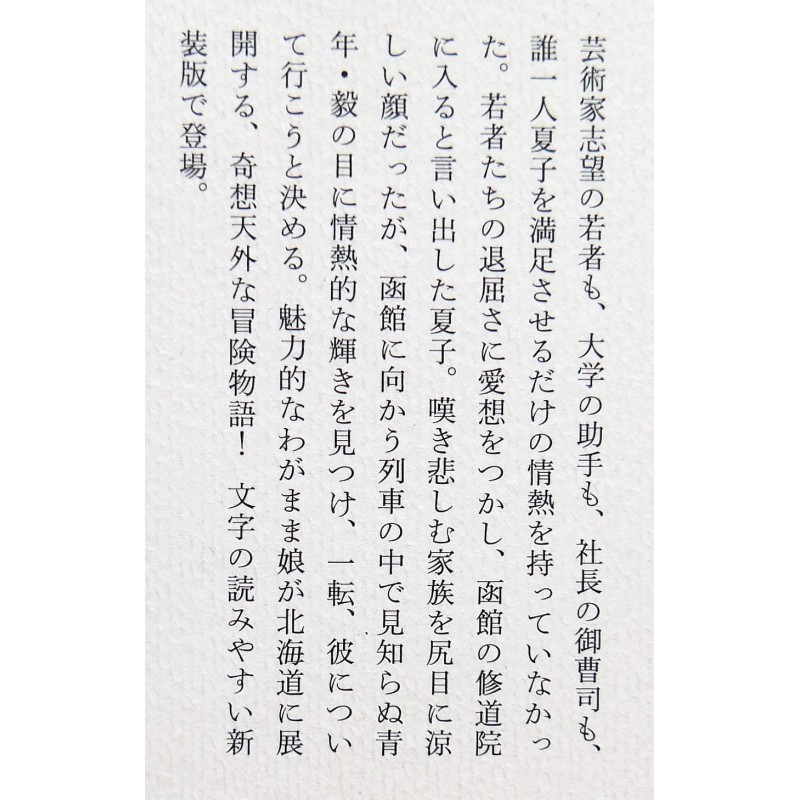 芸術家志望の若者も、大学の助手も、社長の御曹司も、
誰一人夏子を満足させるだけの情熱を持っていなかっ
た。若者たちの退屈さに愛想をつかし、函館の修道院
に入ると言い出した夏子。嘆き悲しむ家族を尻目に涼
しい顔だったが、函館に向かう列車の中で見知らぬ青
年・毅の目に情熱的な輝きを見つけ、一転、彼につい
て行こうと決める。魅力的なわがまま娘が北海道に展
開する、奇想天外な冒険物語！　文字の読みやすい新
装版で登場。